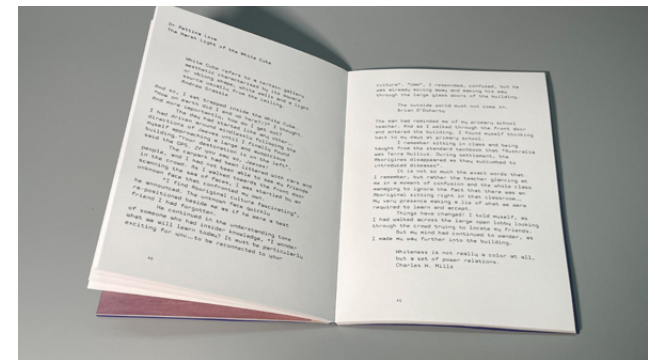 Dr Bettina Love
The Harsh Light of the White Cube
White Cube refers to a certain gallery
aesthetic characterised by its square
or oblong shape, white walls and a light
source usually from the ceiling.
Andrea Grassie
And so, I was trapped inside the White Cube.
"How on earth did I end up here?", I thought.
And more importantly, how do I get out?
The day had started like any other.
I had driven around mindlessly following the
directions of Jeeves until I finally found
myself approaching a large and luminous
building. "Your destination is on the left",
said the GPS.
The car park had been littered with cars and
people, and I had not been able to see my friends
in the crowd. As I walked towards the front door
scanning the sea of faces, I was startled by an
unknown face that confronted my own.
"I find Aboriginal culture fascinating",
he announced. The unknown face quickly
re-positioned beside me as if he were a best
friend I had forgotten.
He continued in the understanding tone
of someone who had insider knowledge, "I wonder
what we will learn today? It must be particularly
exciting for you... to be reconnected to your
culture". "Umm", I responded, confused, but he
was already moving away and making his way
through the large glass doors of the building.
The outside world must not come in.
Brian O'Doherty
The man had reminded me of my primary school
teacher. And as I walked through the front door
and entered the building, I found myself thinking
back to my days at primary school.
I remember sitting in class and being
taught from the standard textbook that "Australia
was Terra Nullius. During settlement, the
Aborigines disappeared as they succumbed to
introduced diseases".
It is not so much the exact words that
I remember, but rather the teacher glancing at
me in a moment of confusion and the whole class
managing to ignore the fact that there was an
Aboriginal sitting right in that classroom...
My very presence making a lie of what we were
required to learn and accept.
Things have changed! I told myself, as
I had walked across the large open lobby looking
through the crowd trying to locate my friends.
But my mind had continued to wander, as
I made my way further into the building.
Whiteness is not really a color at all,
but a set of power relations.
Charles W. Mills